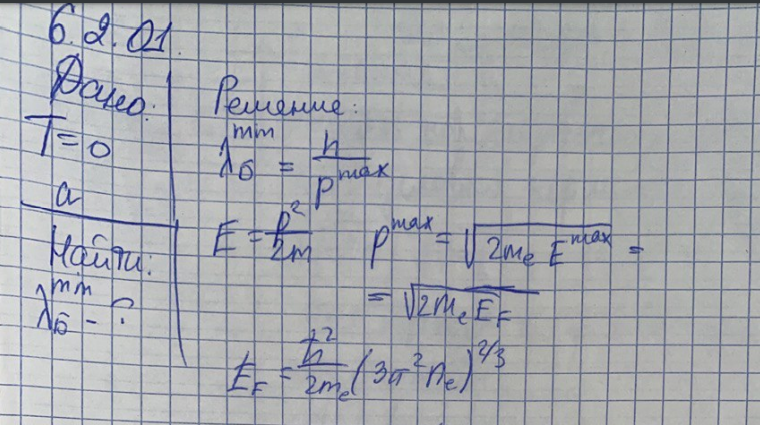 6.2.01.
Дано:
T=0
a
Найти:
λ_Б^min - ?
Решение:
λ_Б^min = h / p^max
E = p² / 2m
p^max = √(2m_e E^max) =
= √(2m_e E_F)
E_F = ħ² / 2m_e (3π² n_e)^2/3